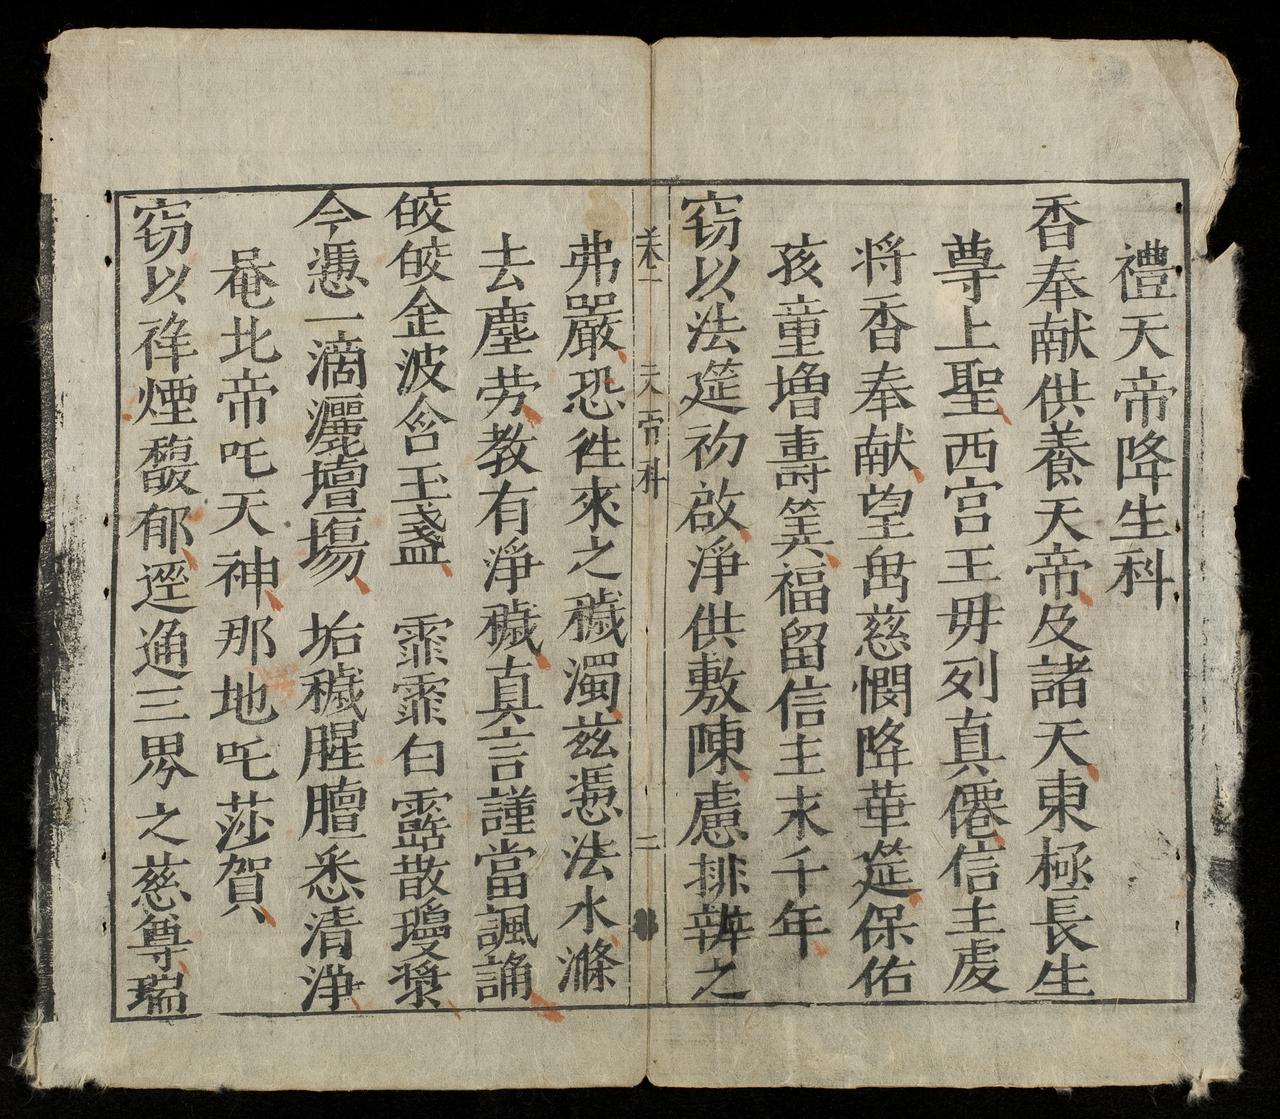 禮天帝降生科
香奉献供養天帝及諸天東極長生
尊上聖西宮王毋列真僊信主虔
将香奉献望㫺慈憫降華筵保佑
孩童增壽筭福留信主末千年
窃以法筵初啟淨供敷陳慮排辨之
卷一 天帝科 二
弗嚴恐徃來之穢濁兹憑法水滌
去塵劳教有淨穢真言謹當諷誦
皎皎金波含玉盞 霏霏白露散瓊漿
今憑一滴灑壇塲 垢穢腥膻悉清淨
唵北帝吒天神那地吒莎賀
窃以祥煙馥郁逕通三界之慈尊瑞